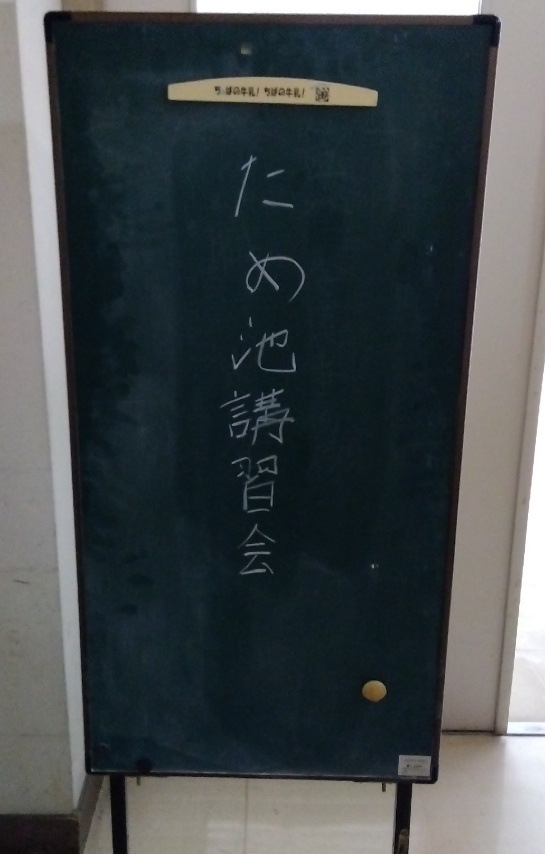 ちばの牛乳! ちばの牛乳!
ため池講習会